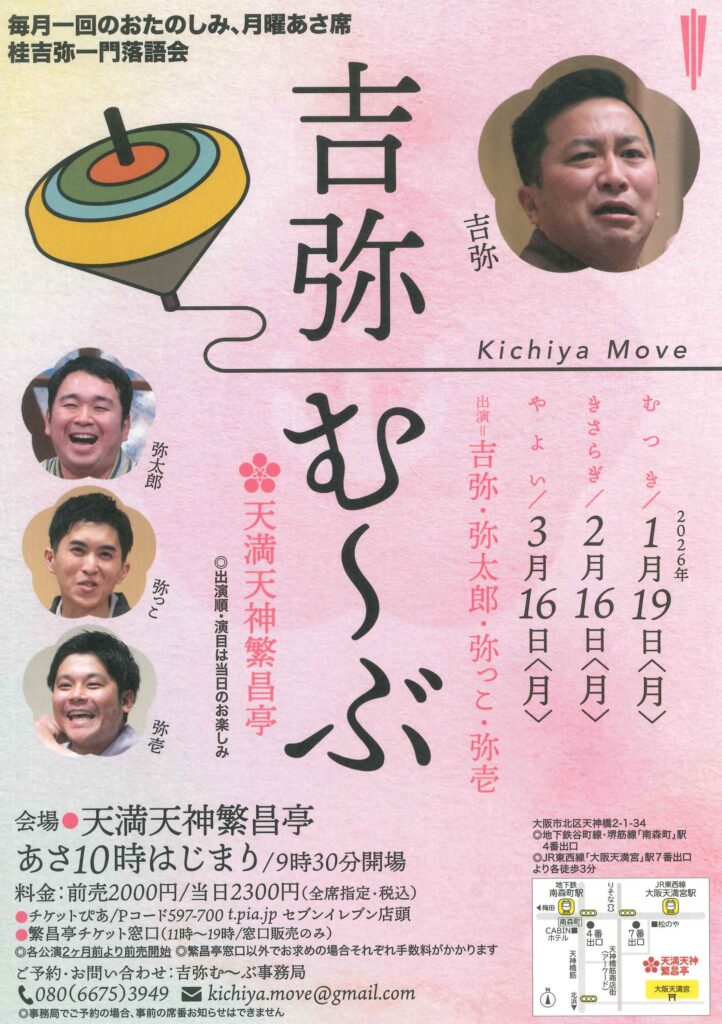 毎月一回のおたのしみ、月曜あさ席
桂吉弥一門落語会
吉弥む〜ぶ
吉弥
Kichiya Move
2026年
むつき/1月19日〈月〉
きさらぎ/2月16日〈月〉
やよい/3月16日〈月〉
出演=吉弥・弥太郎・弥っこ・弥壱
天満天神繁昌亭
◎出演順・演目は当日のお楽しみ
弥太郎
弥っこ
弥壱
会場●天満天神繁昌亭
あさ10時はじまり/9時30分開場
料金:前売2000円/当日2300円(全席指定・税込)
●チケットぴあ/Pコード597-700 t.pia.jp セブンイレブン店頭
●繁昌亭チケット窓口(11時〜19時/窓口販売のみ)
◎各公演2ヶ月前より前売開始 ◎繁昌亭窓口以外でお求めの場合それぞれ手数料がかかります
ご予約・お問い合わせ:吉弥む〜ぶ事務局
080(6675)3949 kichiya.move@gmail.com
◎事務局でご予約の場合、事前の席番お知らせはできません
大阪市北区天神橋2-1-34
◎地下鉄谷町線・堺筋線「南森町」駅
4番出口
◎JR東西線「大阪天満宮」駅7番出口
より各徒歩3分
地下鉄
南森町駅
りそな
JR東西線
大阪天満宮駅
◀梅田
南森町
CABIN
ホテル
4番
出口
7番
出口
■松のや
天神橋筋
天神橋筋商店街
(アーケード)
天満天神
繁昌亭
大阪天満宮
北浜▼
N